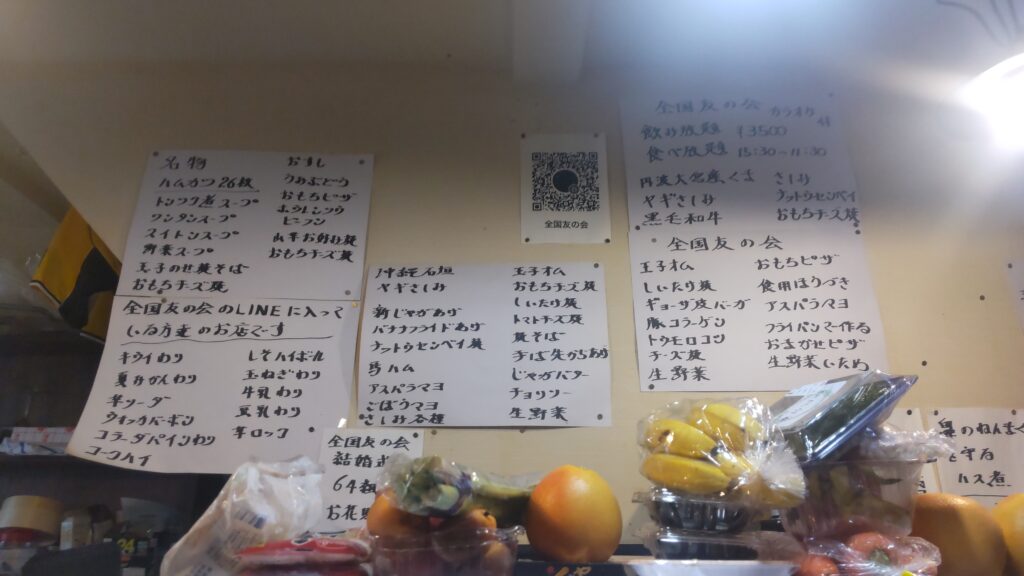 名物
ハムカツ26枚
トンツク煮スープ
ワンタンスープ
スイトンスープ
野菜スープ
玉子のせ焼そば
おもちチズ焼
おすし
うめぶどう
おもちピザ
ホウレンソウ
ビーフン
山芋お好み焼
おもちチーズ焼
全国友の会のLINEに入って
いる方産のお店です
キウイわり
夏みかんわり
芋ソーダ
ウォッカバーボン
コーラ
コークハイ
レモンハイ
玉ねぎわり
牛乳わり
豆乳わり
芋ロック
沖縄石垣
ヤギさしみ
新じゃがあげ
バナナフライドあげ
ナットウセンベイ焼
馬ハム
アスパラマヨ
ごぼうマヨ
さしみ各種
玉子オム
おもちチズ焼
しいたけ焼
トマトチズ焼
焼そば
じゃがバター
チョリソー
生野菜
全国友の会
全国友の会 カラオケ付
飲み放題 ¥3500
食べ放題
丹波大名産くま
ヤギさしみ
黒毛和牛
さしみ
ナットウセンベイ
おもちチズ焼
全国友の会
玉子オム
しいたけ焼
ギョーザ皮バーガ
豚コラーゲン
トウモロコシ
チーズ焼
生野菜
おもちピザ
食用ほうづき
アスパラマヨ
フライパンで作る
おまかせピザ
生野菜いため
全国友の会
結婚式
64組
お花見
ハス煮